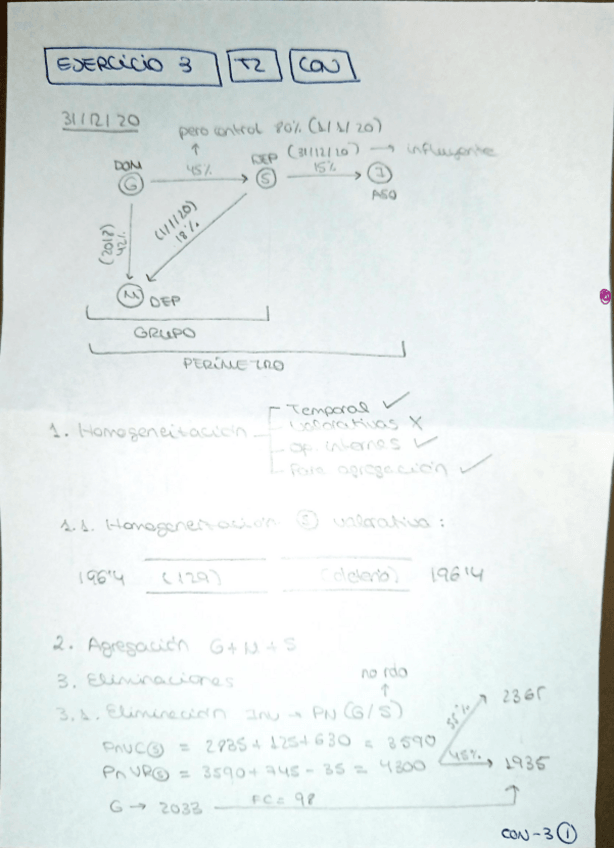 EJERCICIO 3 T2 CON
31/12/20
pero control 80% (1/1/20)
DOM 45% DEP (31/12/20) → influyente
G S 15% I
ASO
(2018) 42%
(1/1/20) 18%
M DEP
GRUPO
PERÍMETRO
1. Homogeneización
Temporal ✓
Valorativas X
Op. internas ✓
Para agregación ✓
1.1. Homogeneización S valorativa:
196'4 (129) 196'4
2. Agregación G+M+S
3. Eliminaciones
no rdo
3.1. Eliminación Inv → PN (G/S)
PNVC(S) = 2835 + 125 + 630 = 3590
PNVR(S) = 3590 + 745 - 35 = 4300
55% 2365
45% 1935
G → 2033 FC = 98
CON-3 1